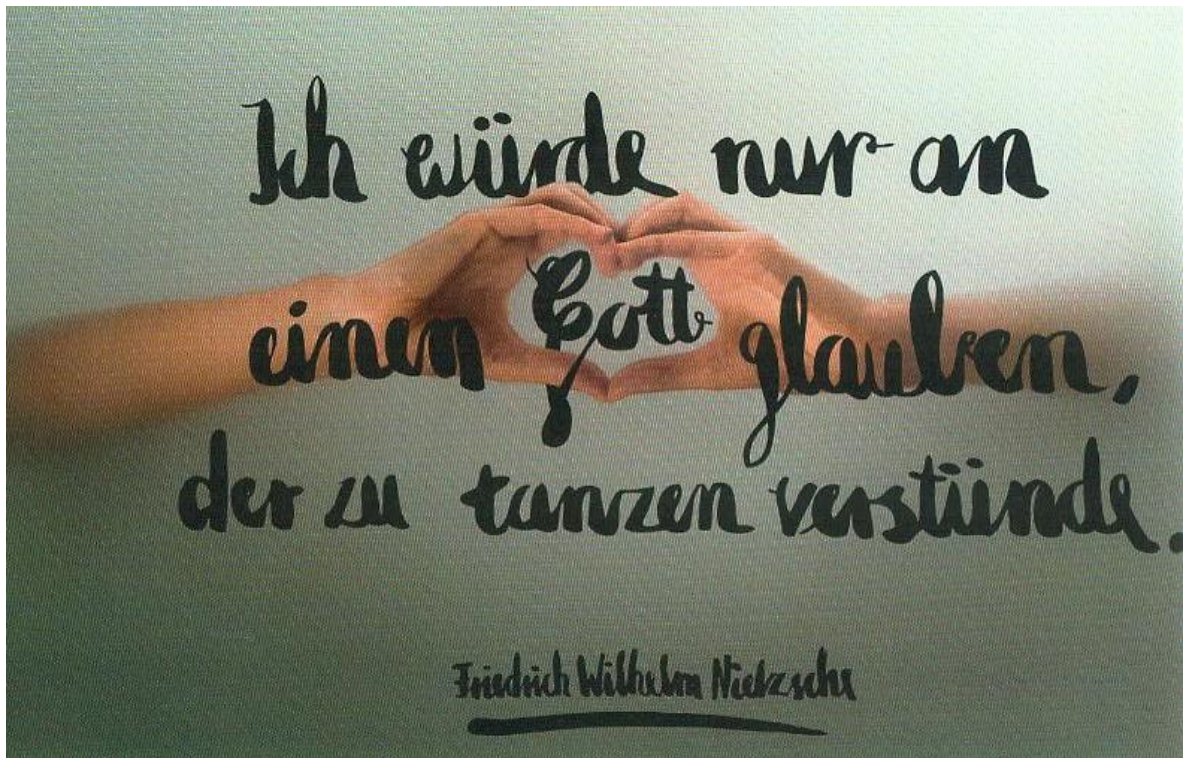 Ich würde nur an
einen Gott glauben,
der zu tanzen verstünde.
Friedrich Wilhelm Nietzsche